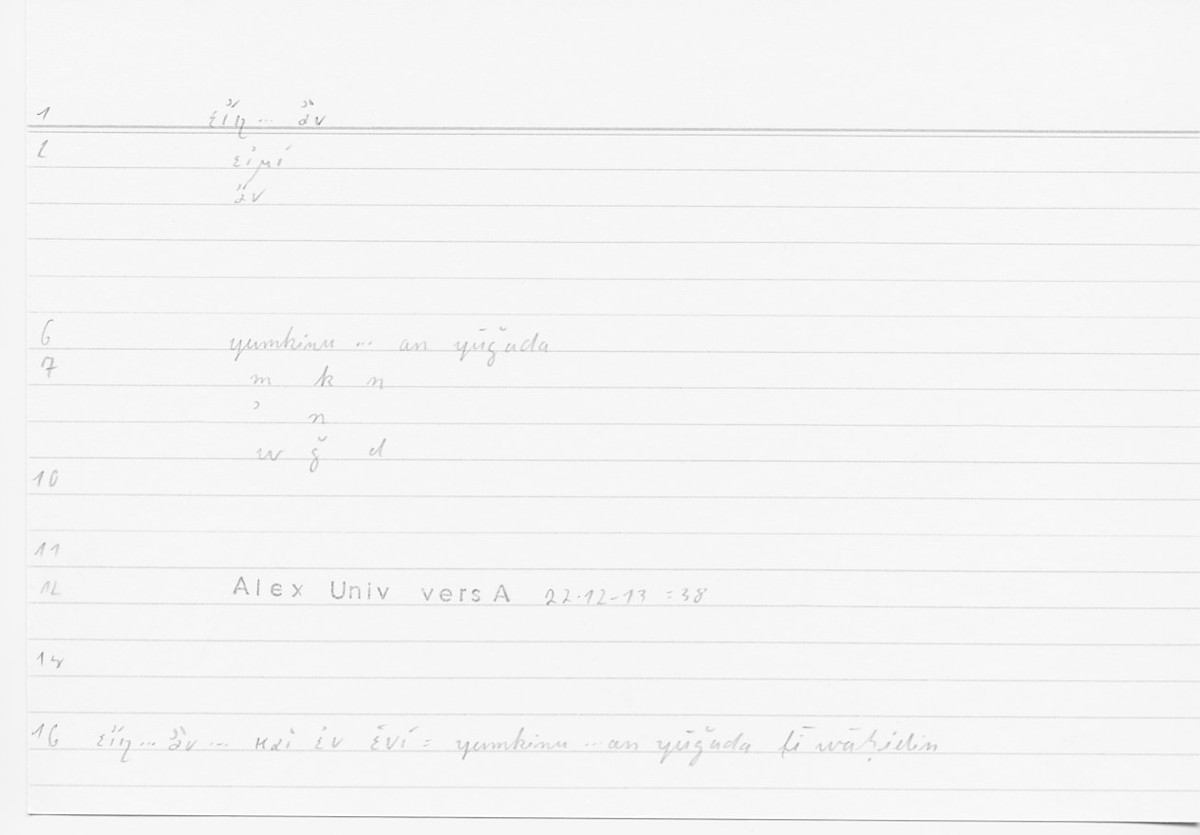 1 εἴη ... ἂν
2 εἰμί
ἄν
6 yumkinu ... an yūǧada
7 m k n
ʾ n
w ǧ d
10
11
12 Alex Univ vers A 22.12-13 = 38
14
16 εἴη ... ἂν ... καὶ ἐν ἑνί = yumkinu ... an yūǧada fī wāḥidin